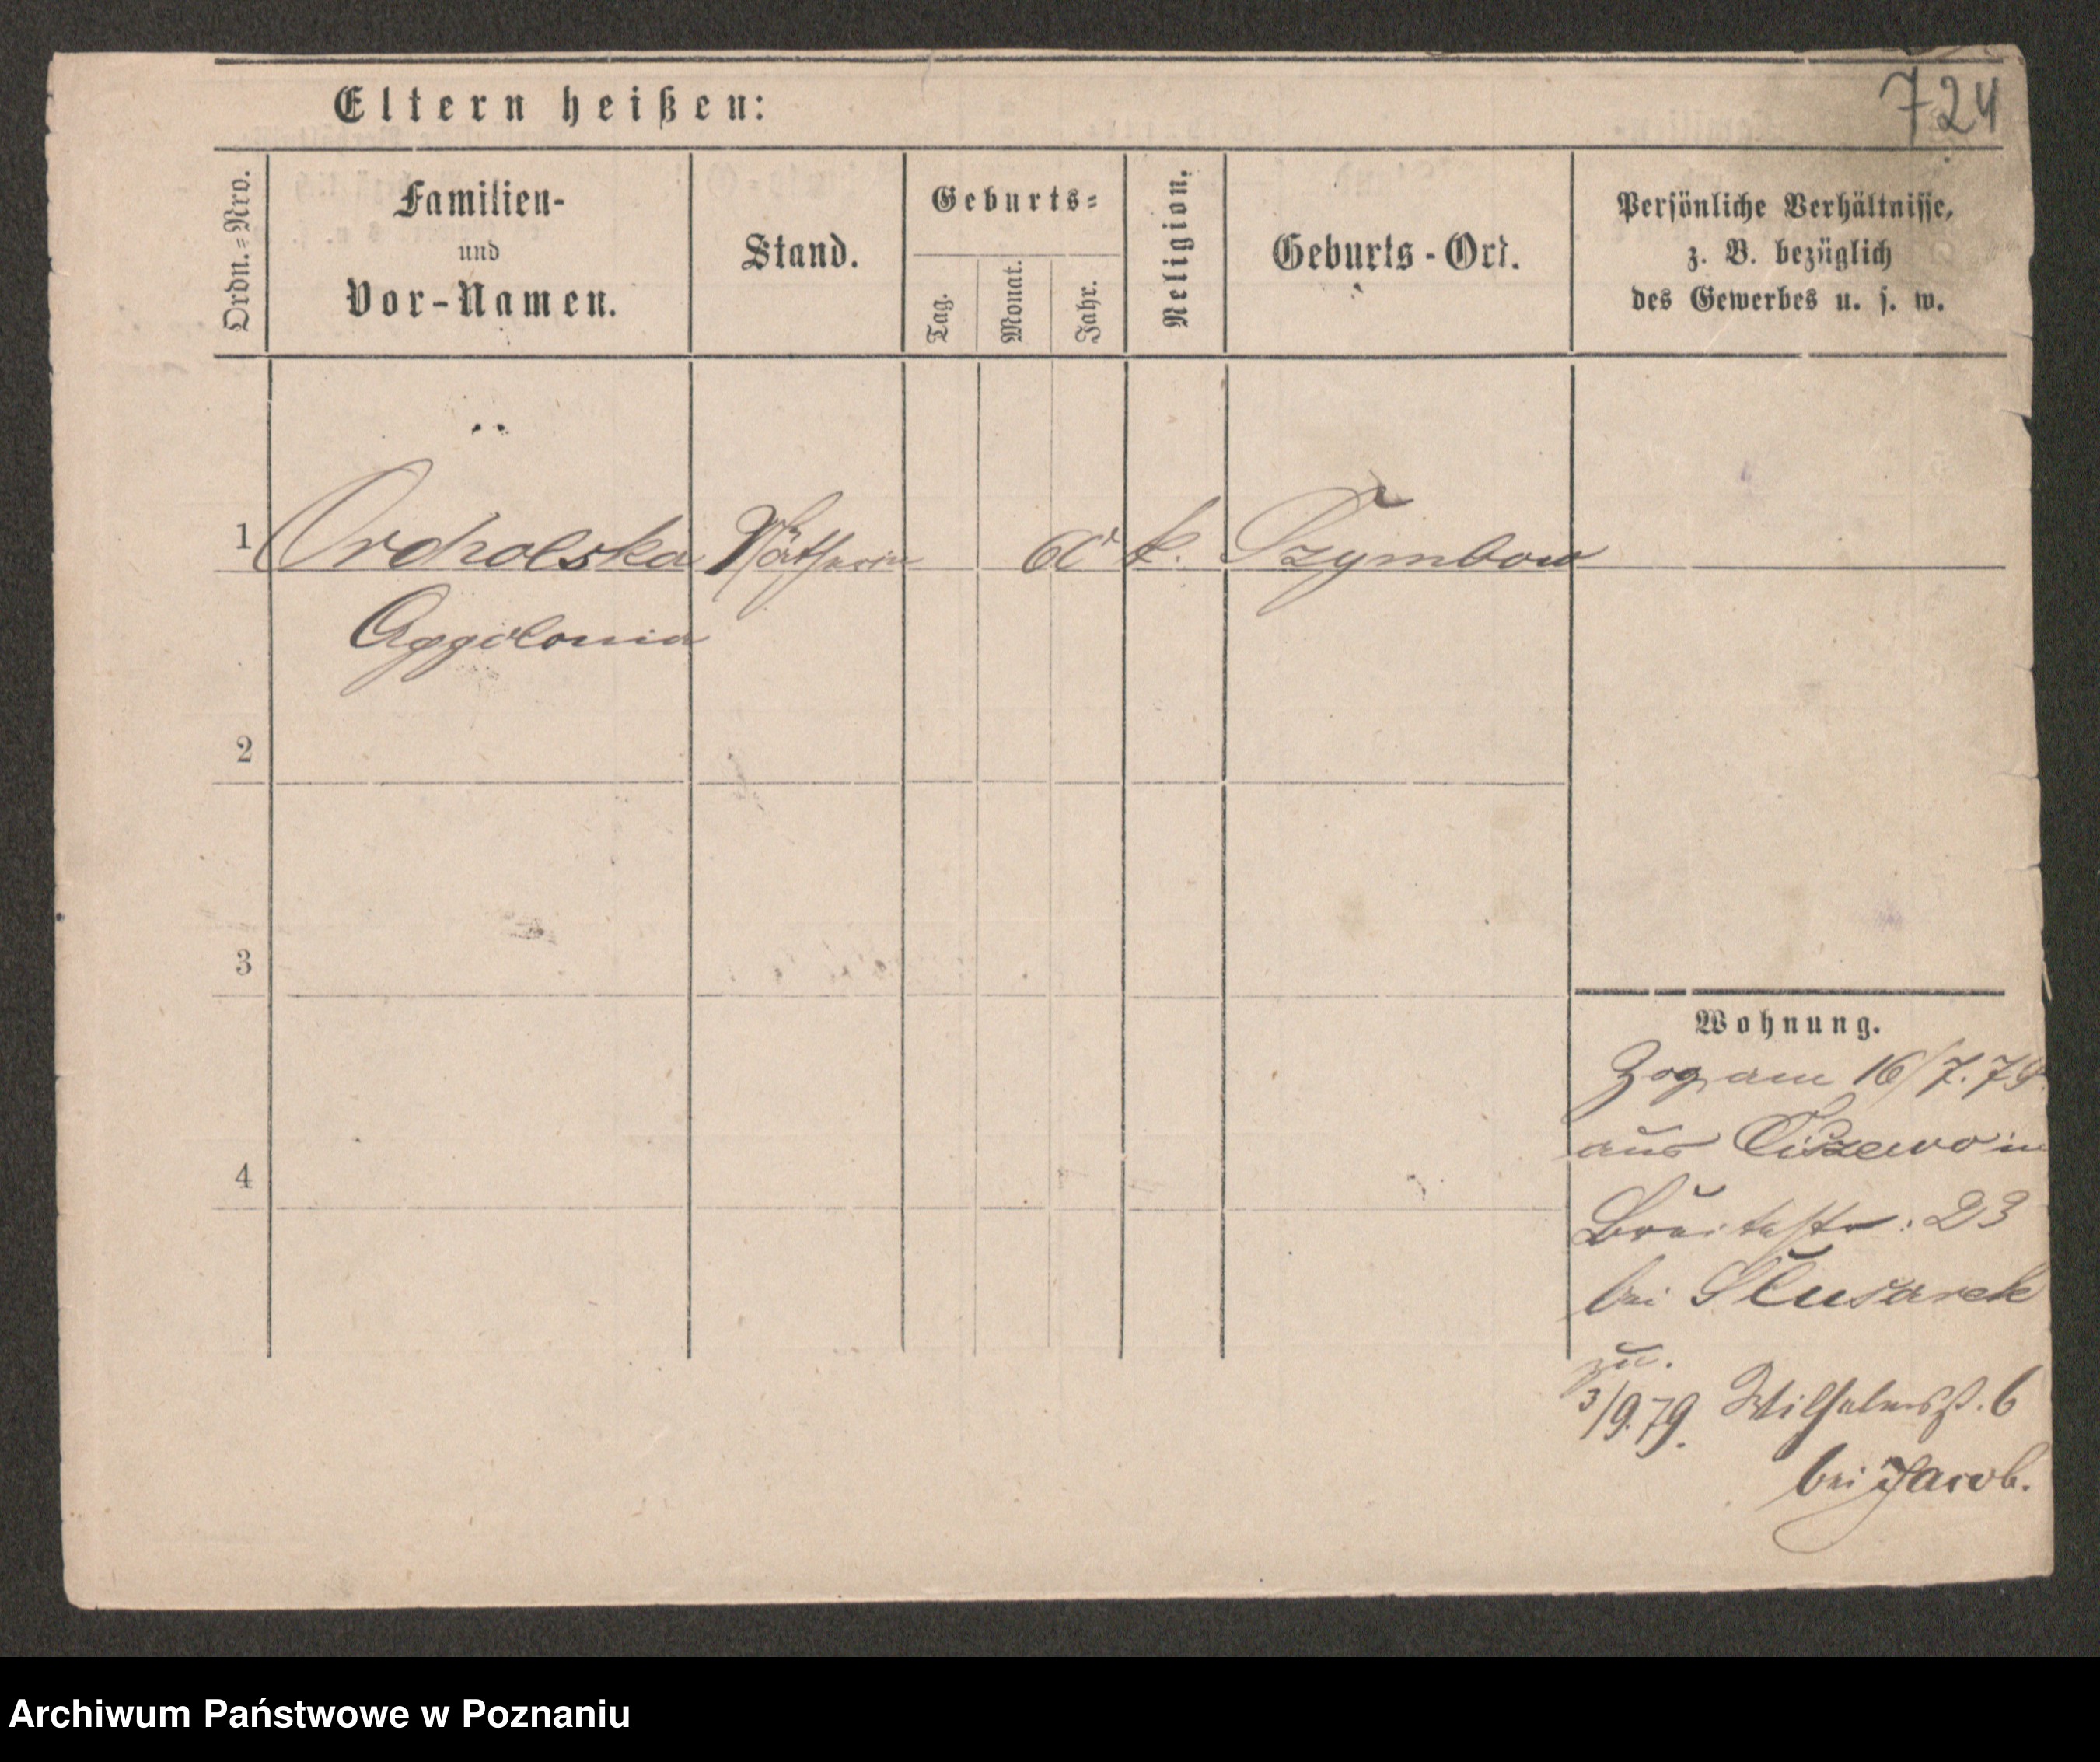 724
Eltern heißen:
Ordn.=Nro.
Familien-
und
Vor-Namen.
Stand.
Geburts=
Tag.
Monat.
Jahr.
Religion.
Geburts-Ort.
Persönliche Verhältnisse,
z. B. bezüglich
des Gewerbes u. s. w.
1 Orcholska Nätherin k.
2
3
4
Wohnung.
Zog am 16/7.79.
aus in
Breitestr: 23
bei Slusarek
zu.
3/9.79. Wilhelmsst. 6
bei Jacob.
Archiwum Państwowe w Poznaniu